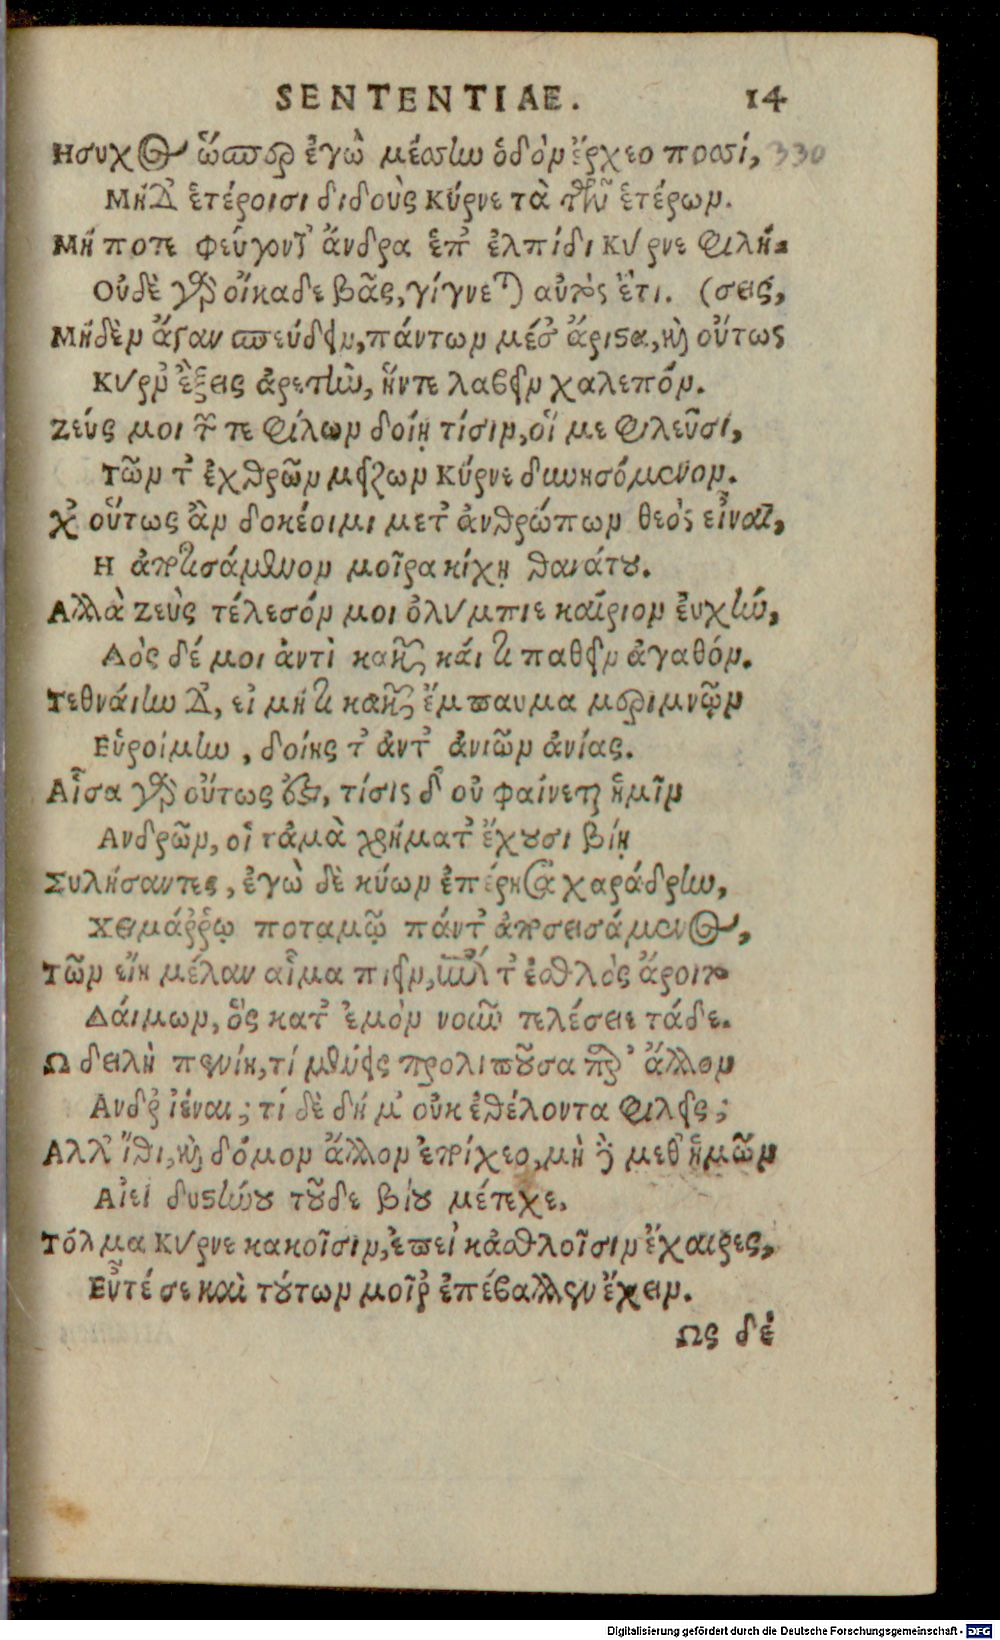 SENTENTIAE. 14
Ησυχος ὥσπερ ἐγὼ μέσσην ὁδὸν ἔρχεο ποσσί, 330
Μήδ' ἑτέροισι διδοὺς Κύρνε τὰ τῶν ἑτέρων.
Μή ποτε φεύγοντ' ἄνδρα ἐπ' ἐλπίδι Κύρνε φιλή-
Οὐδὲ γὰρ οἴκαδε βᾶς, γίγνεται αὐτὸς ἔτι. (σεις,
Μηδὲν ἄγαν σπεύδειν, πάντων μέσ' ἄριστα, καὶ οὕτως
Κύρν' ἕξεις ἀρετὴν, ἥντε λαβεῖν χαλεπόν.
Ζεύς μοι τῶν τε φίλων δοίη τίσιν, οἵ με φιλεῦσι,
Τῶν τ' ἐχθρῶν μεῖζων Κύρνε δυνησόμενον.
Χ' οὕτως ἂν δοκέοιμι μετ' ἀνθρώπων θεὸς εἶναι,
Η ἀποτισάμενον μοῖρα κίχῃ θανάτου.
Αλλὰ Ζεὺς τέλεσόν μοι ὀλύμπιε καίριον εὐχήν,
Δὸς δέ μοι ἀντὶ κακῶν κάι τι παθεῖν ἀγαθόν.
Τεθναίην δ', εἰ μή τι κακῶν ἄμπαυμα μεριμνῶν
Εὑροίμην, δοίης τ' ἀντ' ἀνιῶν ἀνίας.
Αἶσα γὰρ οὕτως ἐστι, τίσις δ' οὐ φαίνεται ἡμῖν
Ανδρῶν, οἳ τἀμὰ χρήματ' ἔχουσι βίῃ
Συλήσαντες, ἐγὼ δὲ κύων ἐπέρησα χαράδρην,
Χειμάῤῥῳ ποταμῷ πάντ' ἀποσεισάμενος,
Τῶν εἴη μέλαν αἷμα πιεῖν, ἐπί τ' ἐσθλὸς ὄροιτο
Δάιμων, ὃς κατ' ἐμὸν νοῦν τελέσειε τάδε.
Ω δειλὴ πενίη, τί μένεις προλιποῦσα παρ' ἄλλον
Ανδρ' ἰέναι; τί δὲ δή μ' οὐκ ἐθέλοντα φιλεῖς;
Αλλ' ἴθι, καὶ δόμον ἄλλον ἐποίχεο, μὴ δὲ μεθ' ἡμῶν
Αἰεὶ δυστήνου τοῦδε βίου μέτεχε.
Τόλμα Κύρνε κακοῖσιν, ἐπεὶ κἀσθλοῖσιν ἔχαιρες,
Εὖτέ σε καὶ τούτων μοῖρ' ἐπέβαλλεν ἔχειν.
Ως δὲ
Digitalisierung gefördert durch die Deutsche Forschungsgemeinschaft - DFG